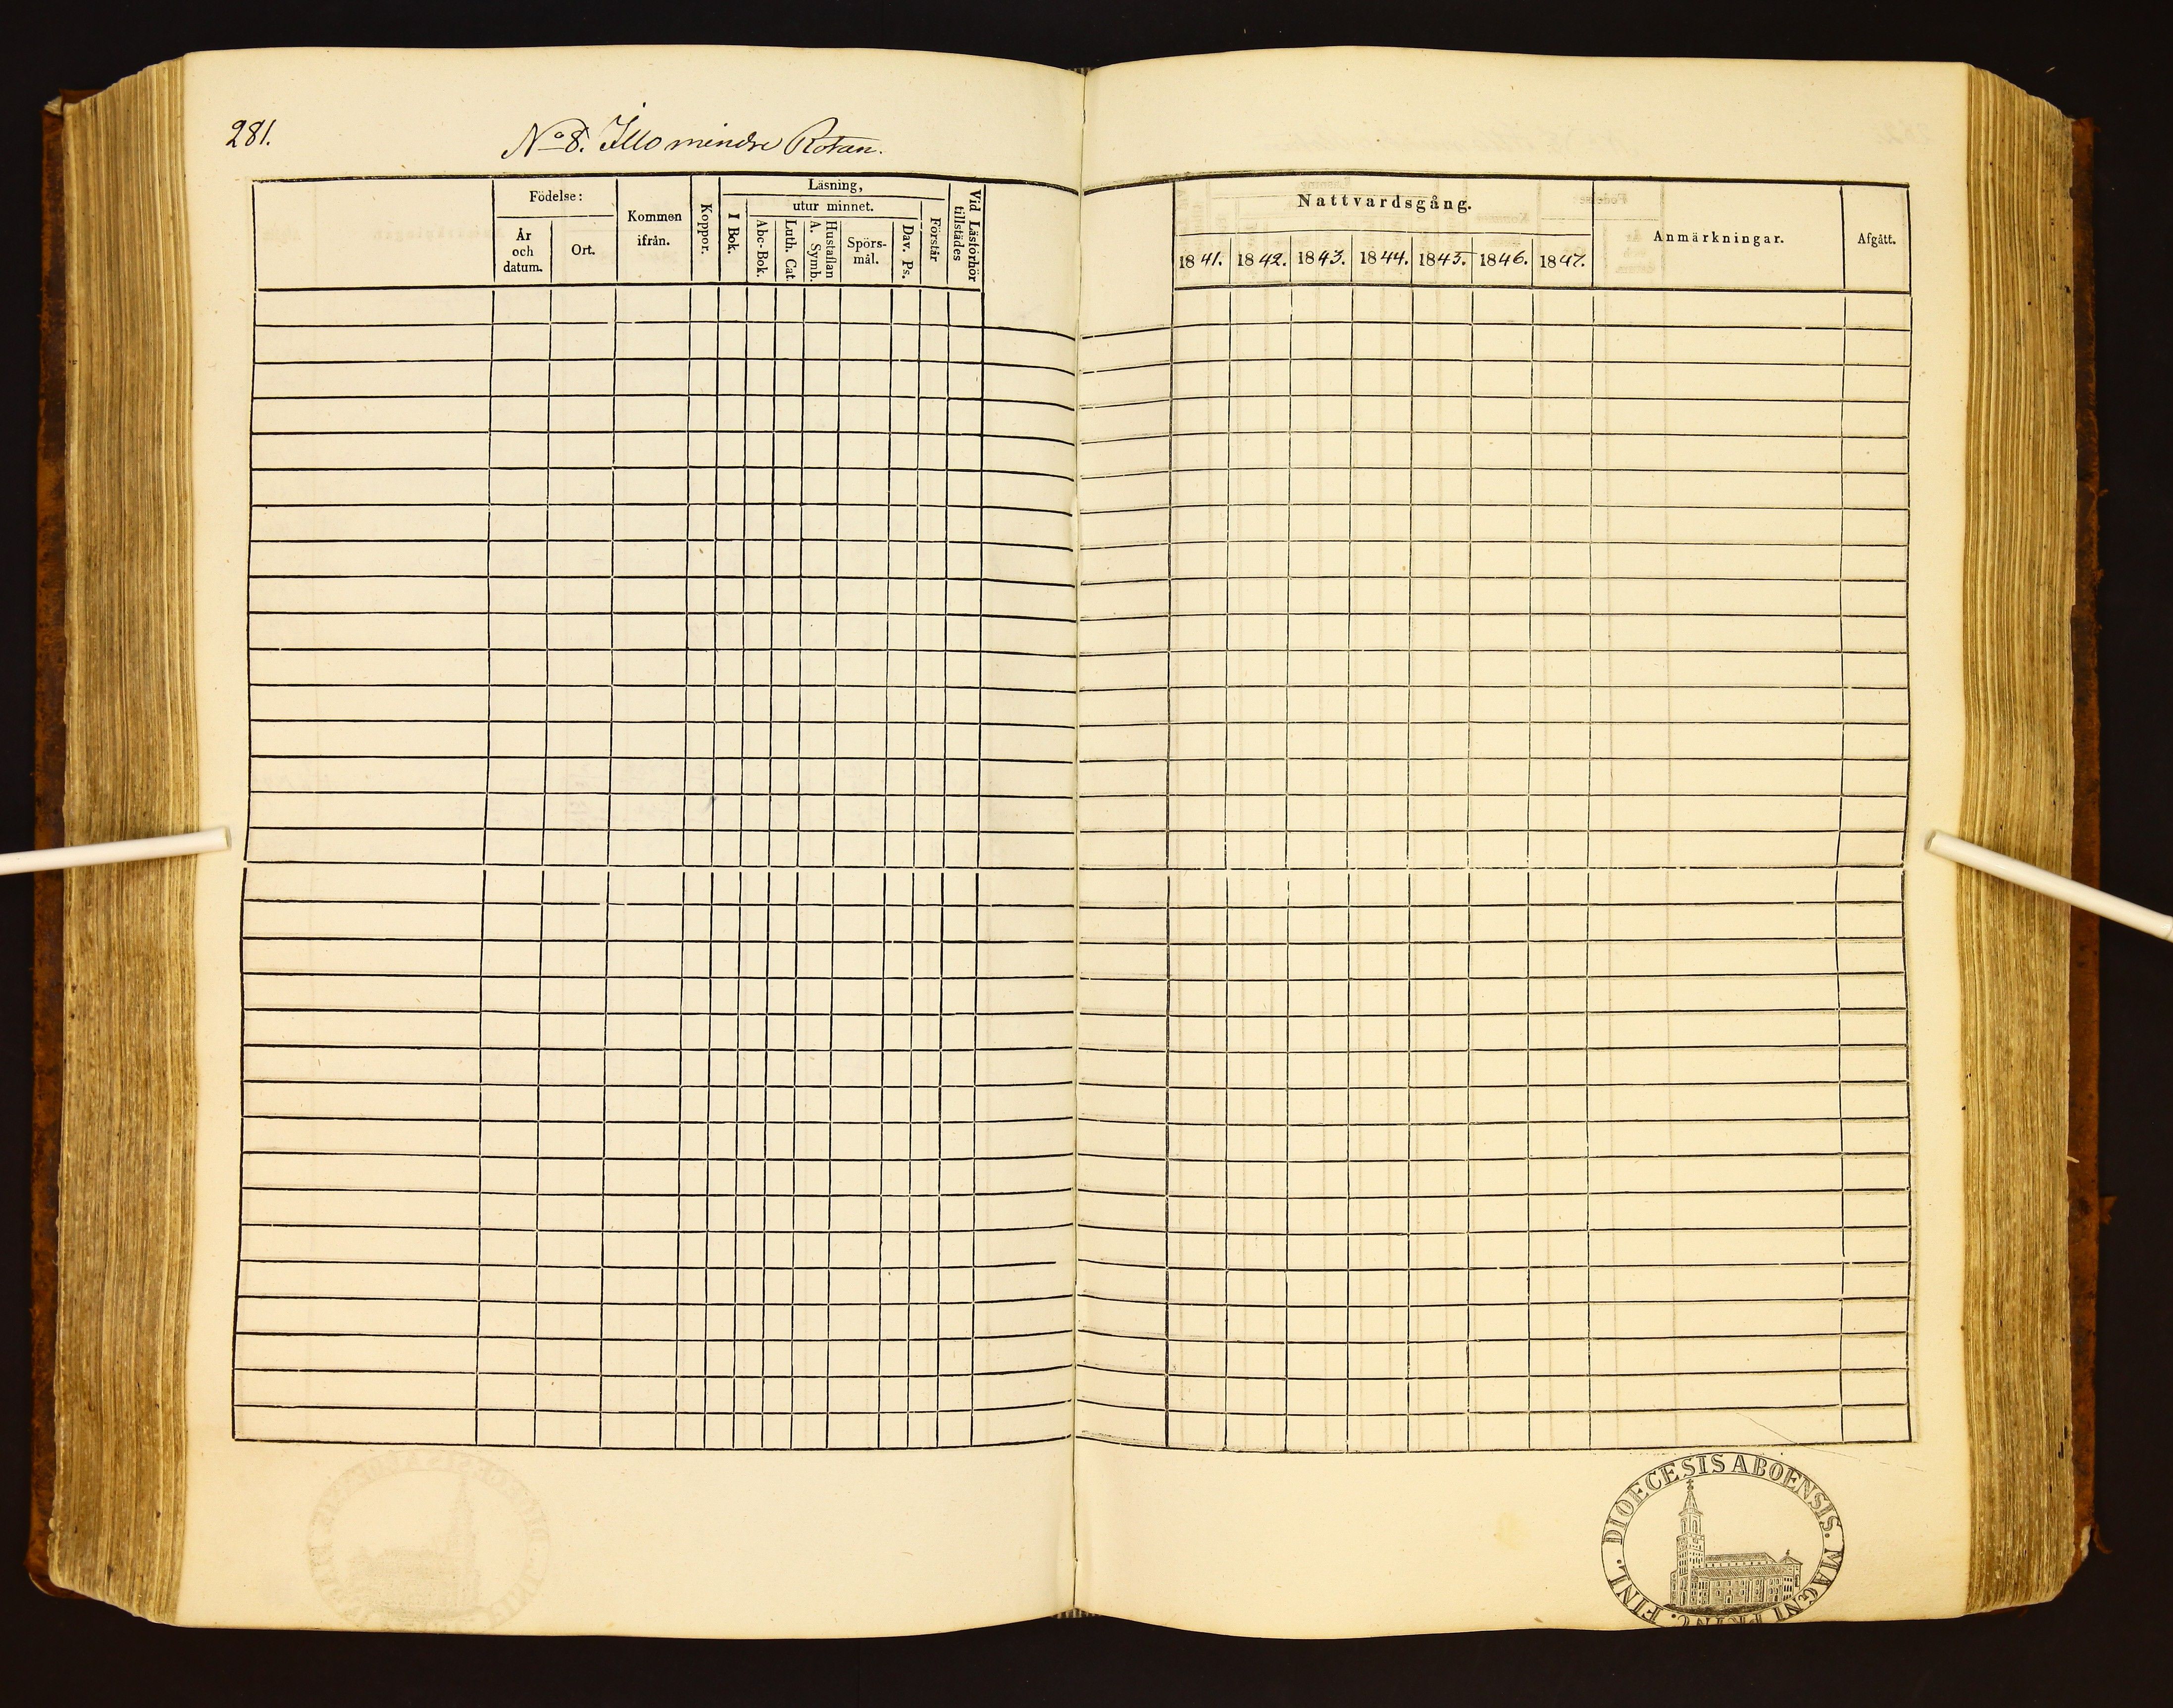 281.
No 8. Illo mindre Rotan.
Födelse:
År och datum.
Ort.
Kommen ifrån.
Koppor.
Läsning,
I Bok.
utur minnet.
Abc-Bok.
Luth. Cat.
Hustaflan A. Symb.
Spörs-mål.
Dav. Ps.
Förstår
Vid Läsförhör tillstädes
Nattvardsgång.
1841. 1842. 1843. 1844. 1845. 1846. 1847.
Anmärkningar.
Afgått.
DIOECESIS ABOENSIS. MAGNI PRINC. FINL.